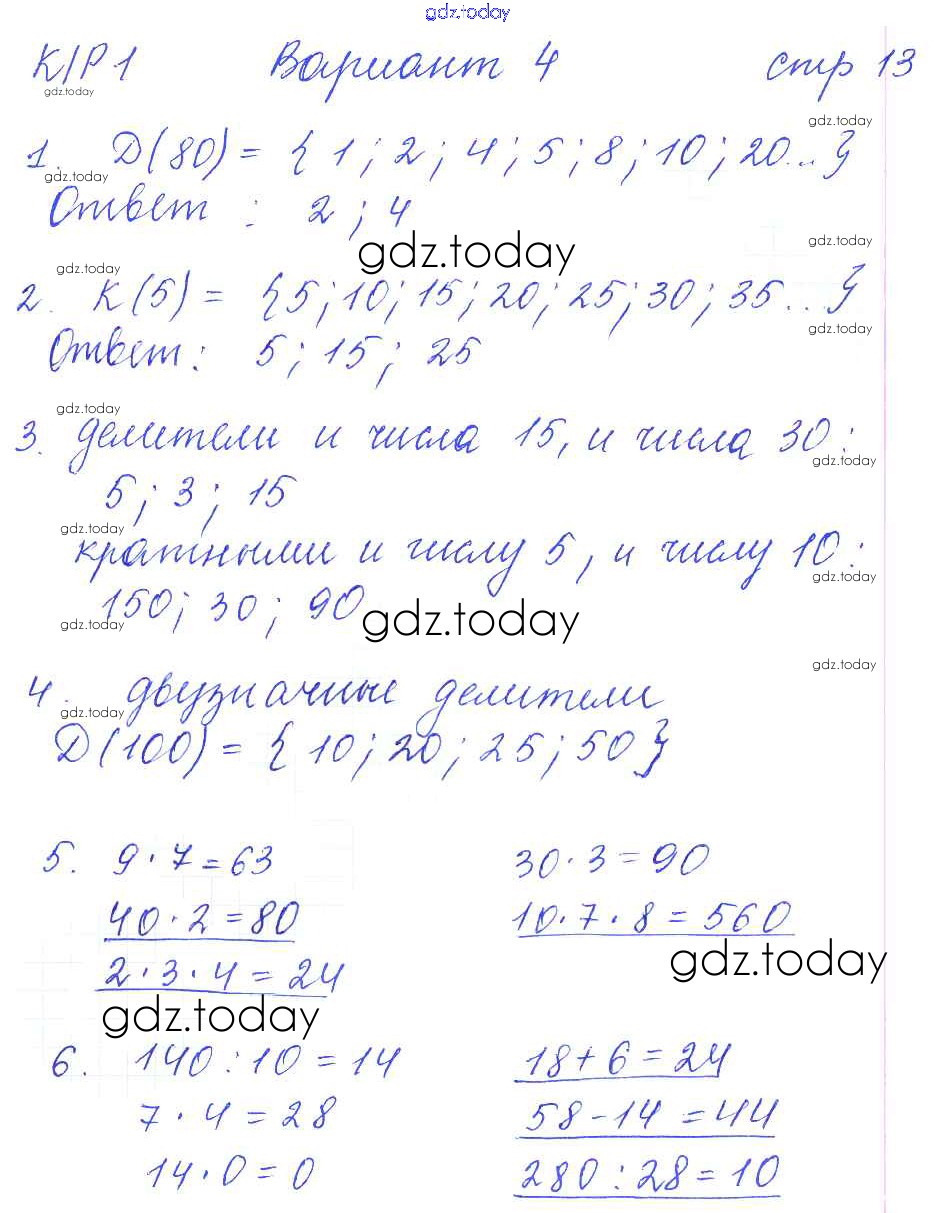 gdz.today
К/Р 1 Вариант 4 стр 13
gdz.today
gdz.today
1. D(80) = {1; 2; 4; 5; 8; 10; 20...}
gdz.today
Ответ : 2; 4
gdz.today
gdz.today
gdz.today
2. K(5) = {5; 10; 15; 20; 25; 30; 35...}
gdz.today
Ответ: 5; 15; 25
gdz.today
3. делители и числа 15, и числа 30:
gdz.today
5; 3; 15
gdz.today
кратными и числу 5, и числу 10:
gdz.today
150; 30; 90
gdz.today
gdz.today
gdz.today
4. двузначные делители
gdz.today
D(100) = {10; 20; 25; 50}
5. 9 · 7 = 63 30 · 3 = 90
40 · 2 = 80 10 · 7 · 8 = 560
gdz.today
2 · 3 · 4 = 24
gdz.today
6. 140 : 10 = 14 18 + 6 = 24
7 · 4 = 28 58 - 14 = 44
14 · 0 = 0 280 : 28 = 10